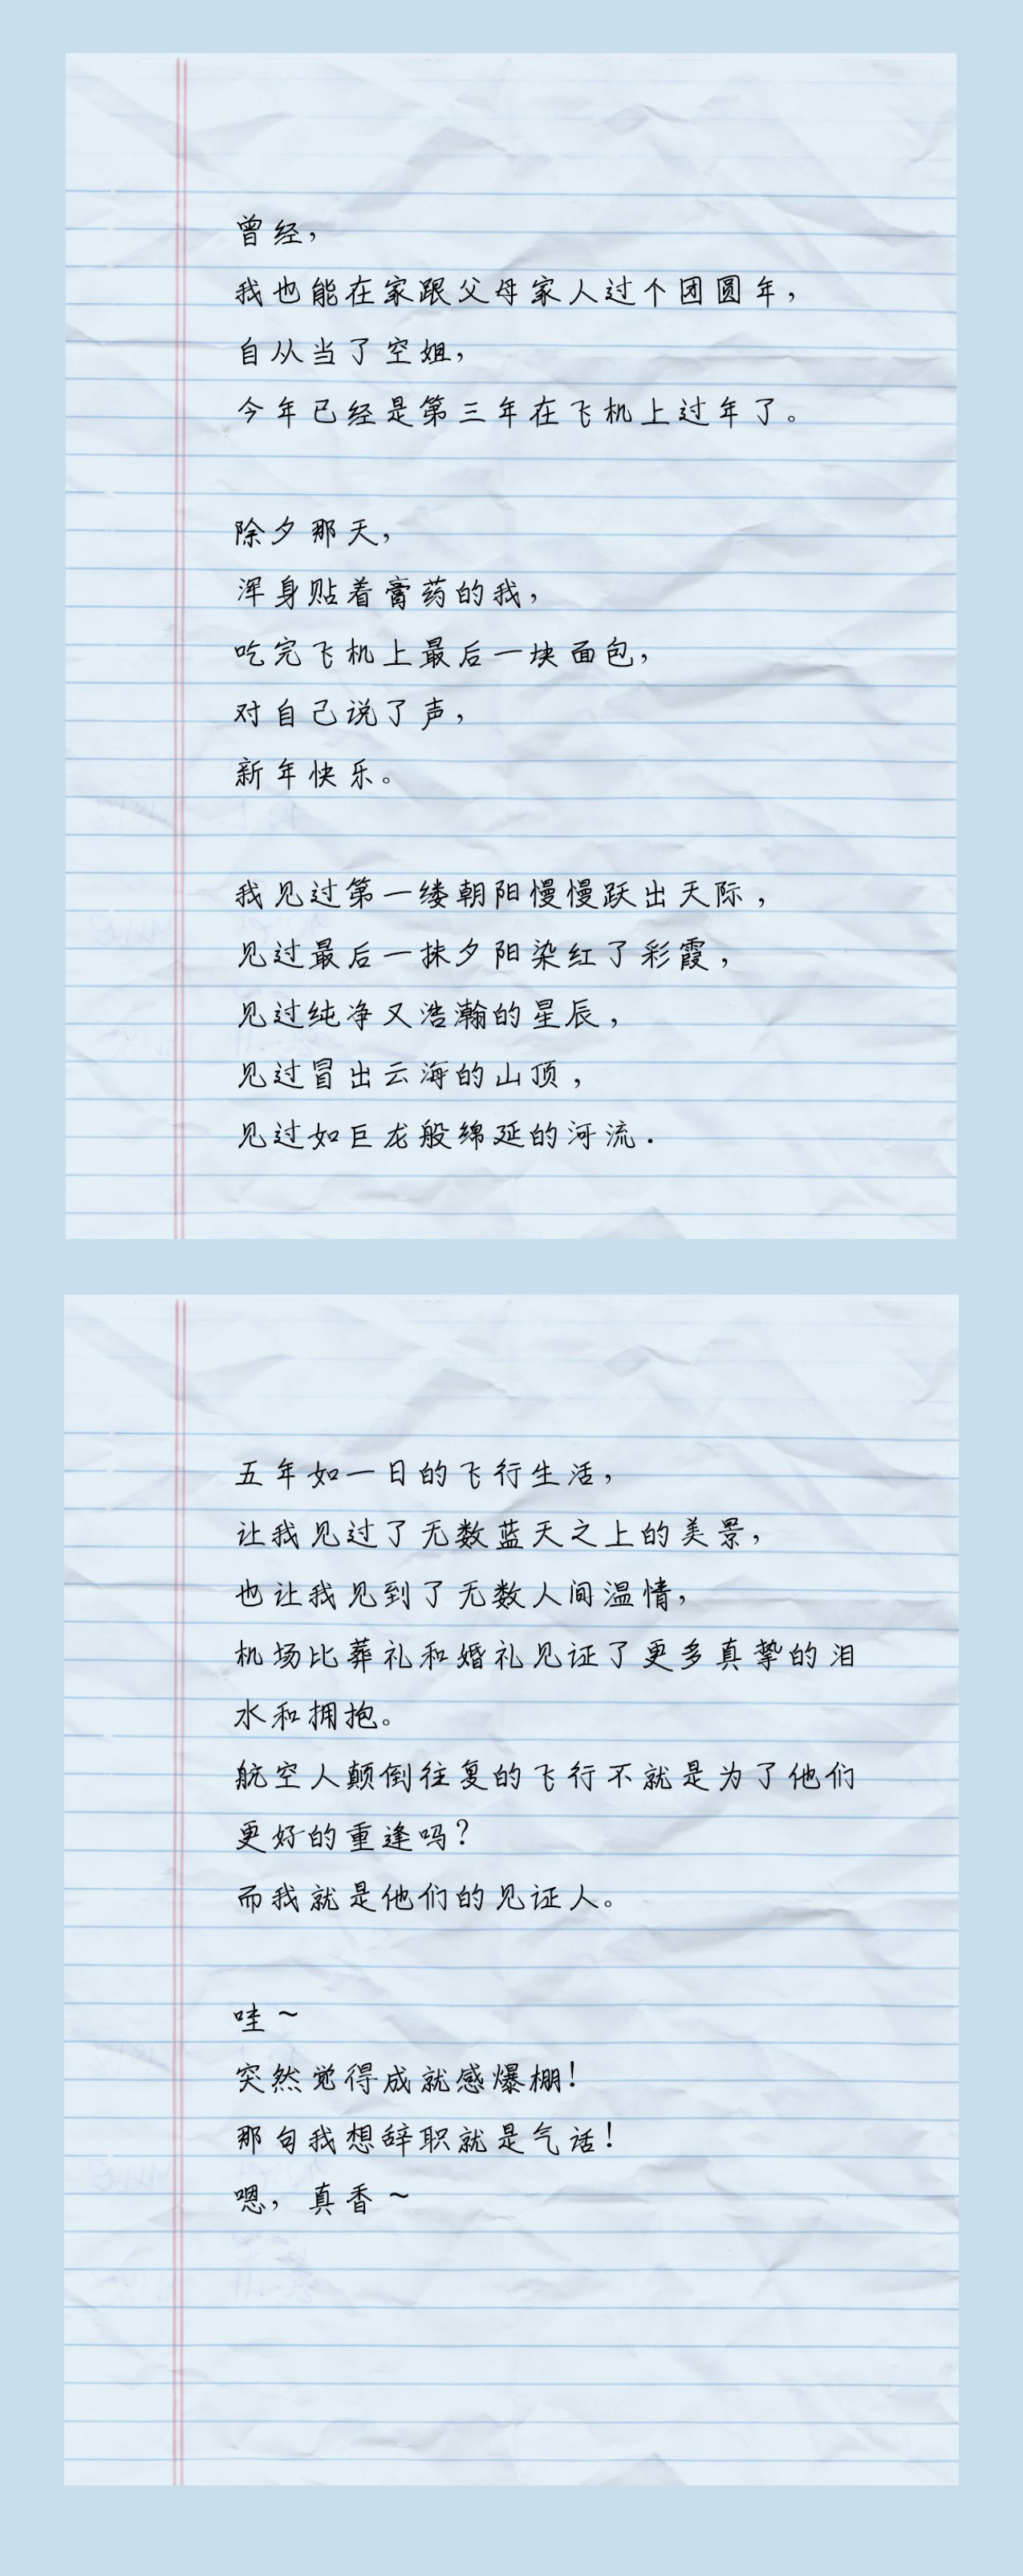 曾经，
我也能在家跟父母家人过个团圆年，
自从当了空姐，
今年已经是第三年在飞机上过年了。
除夕那天，
浑身贴着膏药的我，
吃完飞机上最后一块面包，
对自己说了声，
新年快乐。
我见过第一缕朝阳慢慢跃出天际，
见过最后一抹夕阳染红了彩霞，
见过纯净又浩瀚的星辰，
见过冒出云海的山顶，
见过如巨龙般绵延的河流.
五年如一日的飞行生活，
让我见过了无数蓝天之上的美景，
也让我见到了无数人间温情，
机场比葬礼和婚礼见证了更多真挚的泪
水和拥抱。
航空人颠倒往复的飞行不就是为了他们
更好的重逢吗？
而我就是他们的见证人。
哇~
突然觉得成就感爆棚！
那句我想辞职就是气话！
嗯，真香~